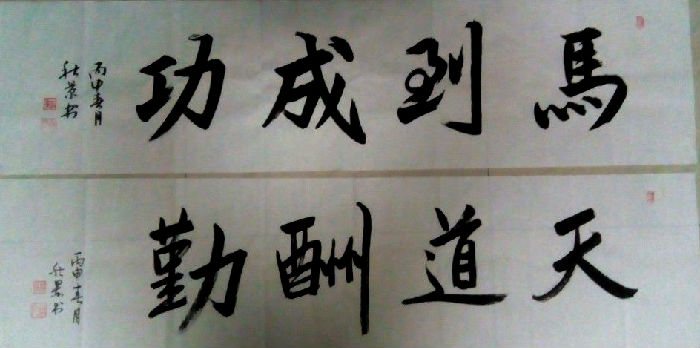 馬到成功
丙申春月
秋景书
天道酬勤
丙申春月
秋景书